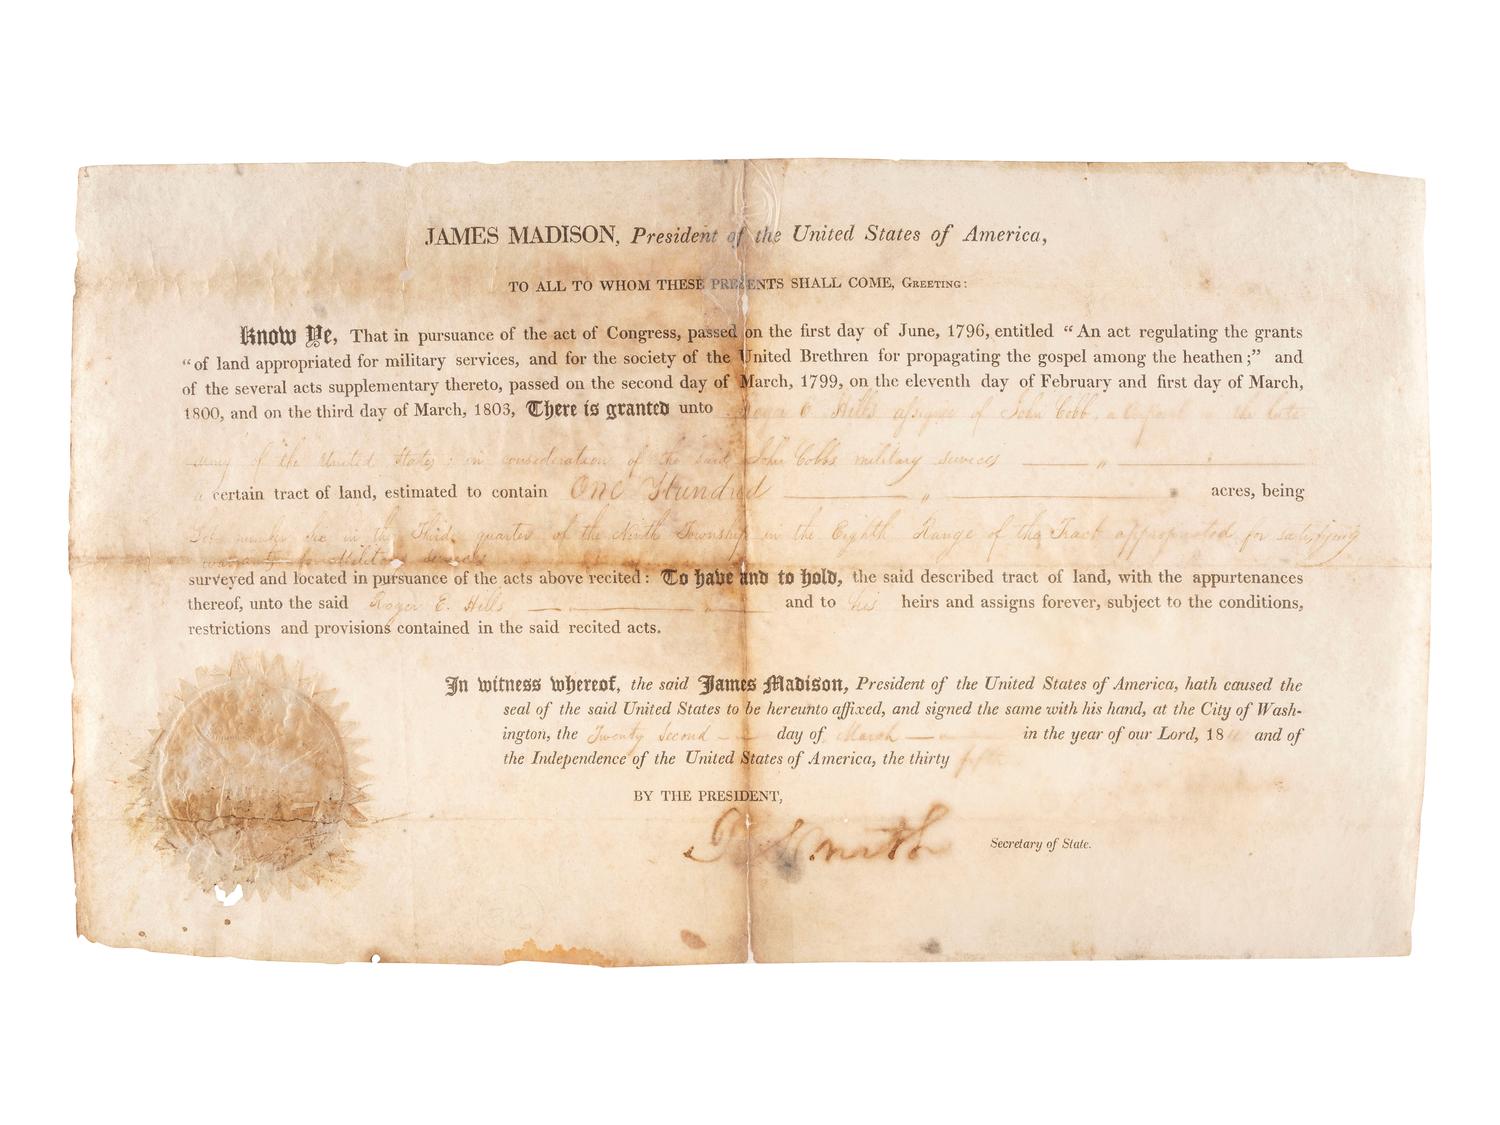 JAMES MADISON, President of the United States of America,
TO ALL TO WHOM THESE PRESENTS SHALL COME, GREETING:
Know Ye, That in pursuance of the act of Congress, passed on the first day of June, 1796, entitled “An act regulating the grants
“of land appropriated for military services, and for the society of the United Brethren for propagating the gospel among the heathen;” and
of the several acts supplementary thereto, passed on the second day of March, 1799, on the eleventh day of February and first day of March,
1800, and on the third day of March, 1803, There is granted unto Roger E. Hills assignee of John Cobb, a the late
army of the United States; in consideration of the said John Cobbs military services
a certain tract of land, estimated to contain One Hundred acres, being
Lot number six in the Third quarter of the Ninth Township in the Eighth Range of the Tract appropriated for satisfying
warrants for Military services
surveyed and located in pursuance of the acts above recited: To have and to hold, the said described tract of land, with the appurtenances
thereof, unto the said Roger E. Hills and to his heirs and assigns forever, subject to the conditions,
restrictions and provisions contained in the said recited acts.
In witness whereof, the said James Madison, President of the United States of America, hath caused the
seal of the said United States to be hereunto affixed, and signed the same with his hand, at the City of Wash-
ington, the Twenty Second day of March in the year of our Lord, 18 and of
the Independence of the United States of America, the thirty fifth
BY THE PRESIDENT,
R Smith Secretary of State.